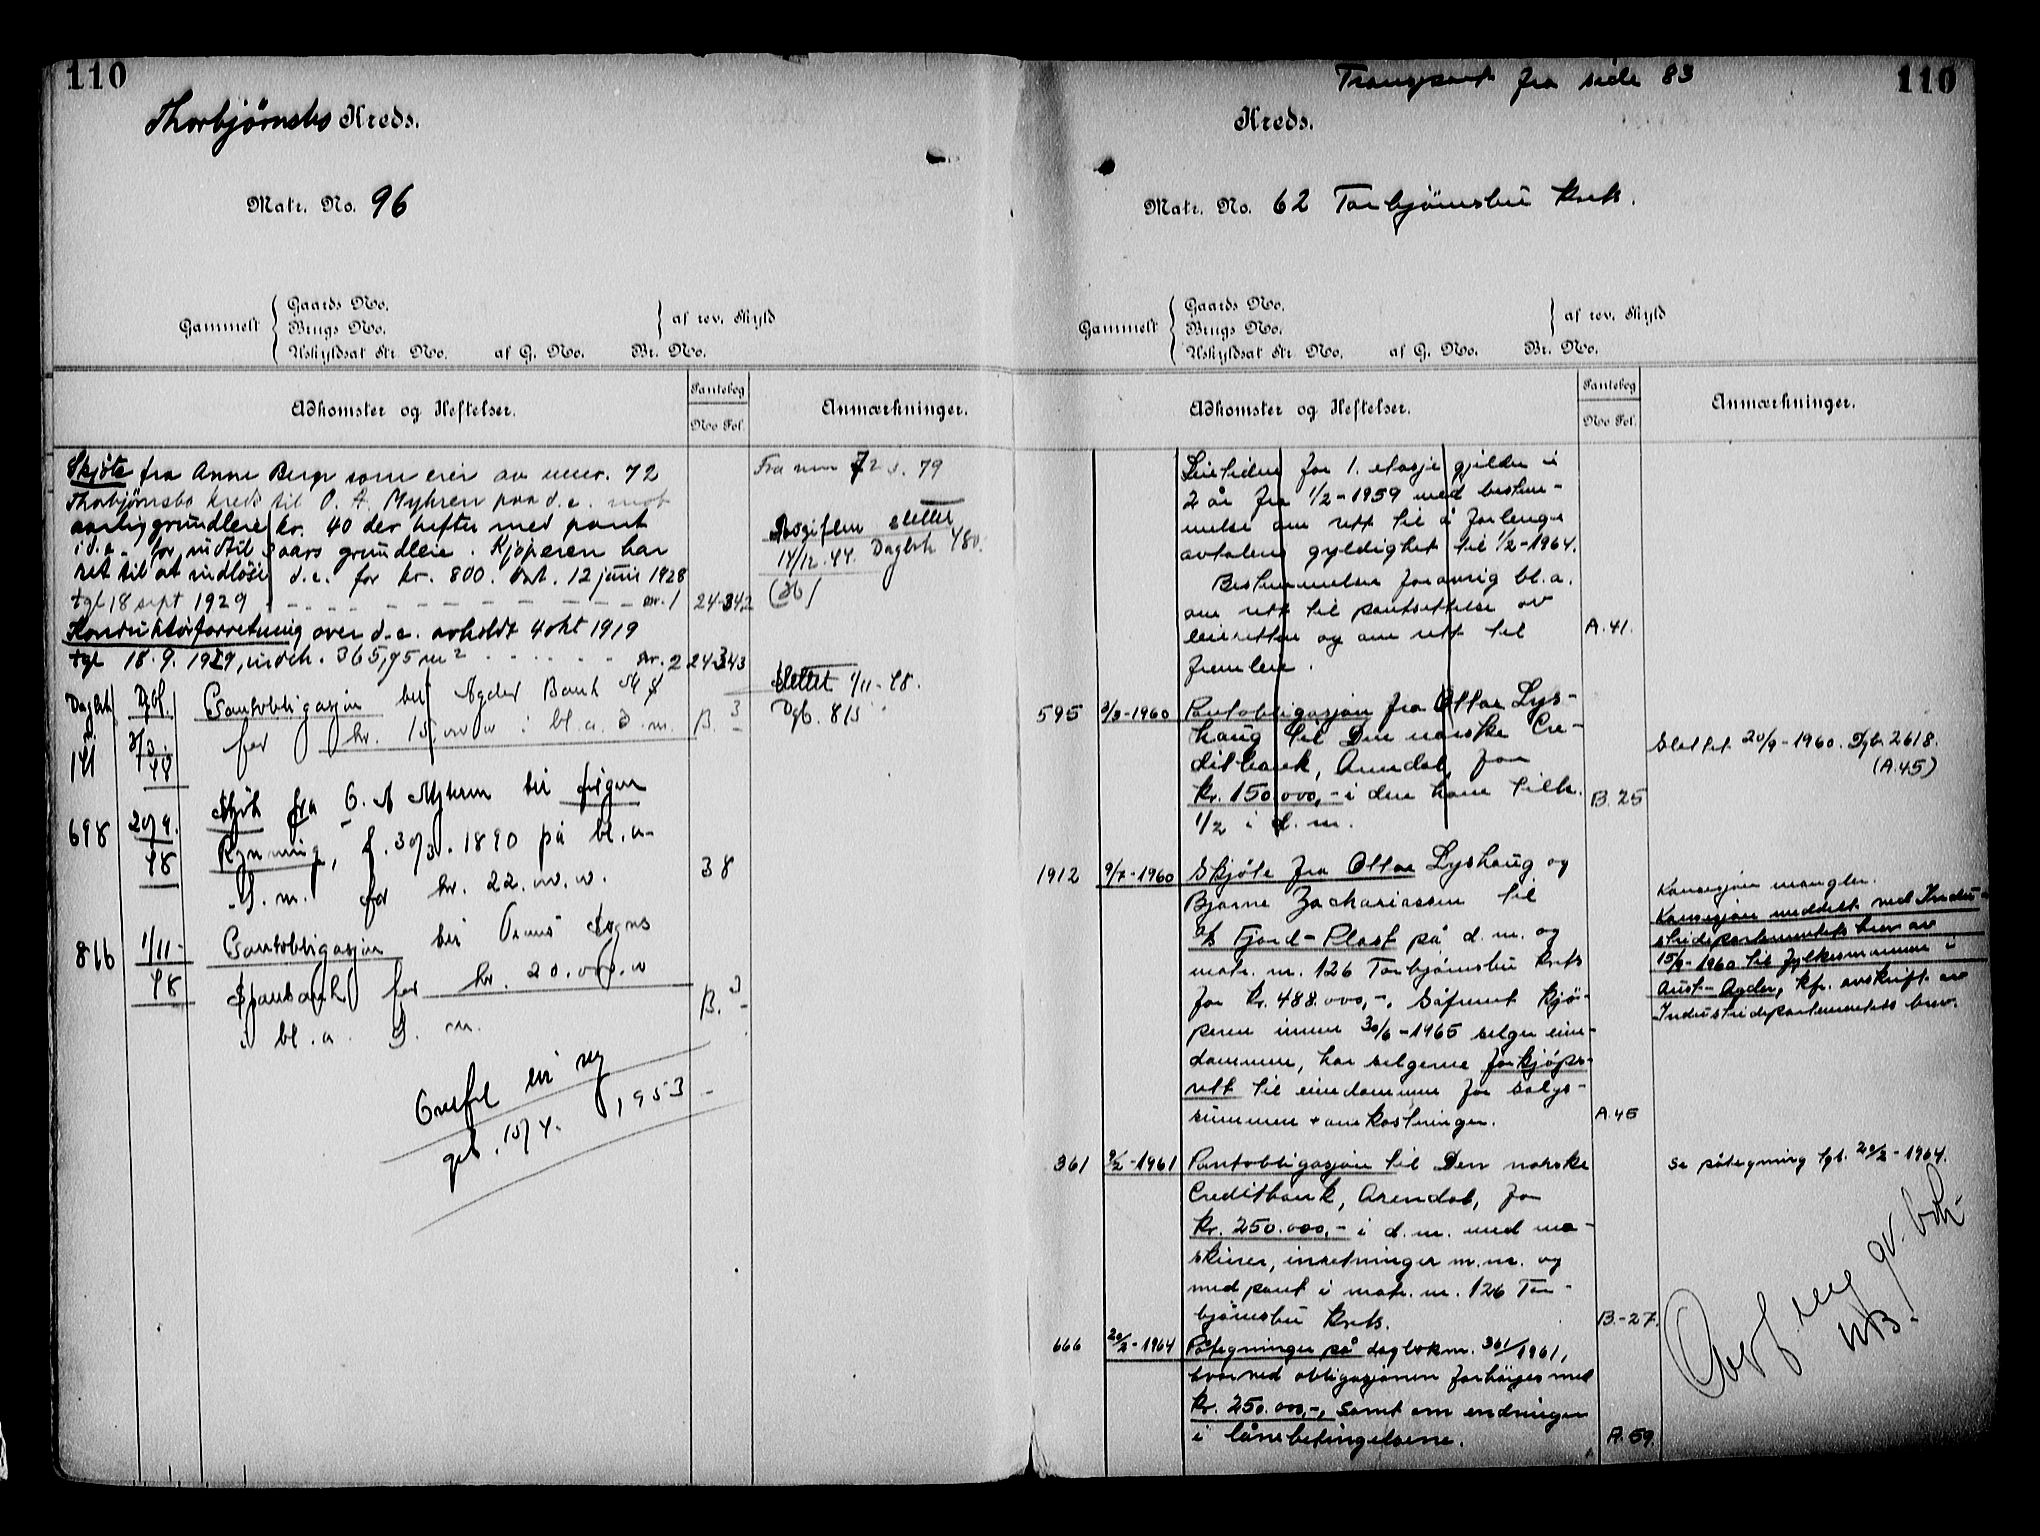 110
Thorbjørnsbo Kreds.
Matr. No. 96
Gammelt
Gaards No.
Brugs No.
Uskyldsat Str. No. af G. No. Br. No.
af rev. Skyld
Adkomster og Heftelser.
Pantebog
No Fol.
Anmærkninger.
Skjøte fra Anne Berge som eier av mnr. 72
Thorbjørnsbo kreds til O. A. Myhren paa d.e. mot
aarlig grundleie kr. 40 der hefter med pant
i d.e. for indtil 3 aars grundleie. Kjøperen har
ret til at indløse d.e. for kr. 800. Dat. 12 juni 1928
tgl 18 sept 1929 nr. 1 24-342
Konduktørforretning over d.e. avholdt 4 okt 1919
tgl 18.9.1929, indeh. 365,75 m² nr. 2 24-343
Fra mnr 72 s. 79
Avgiften slettet
14/12.44. Dagbok 480.
Dagbk Dgbl.
141 3/3. 44
Pantobligasjon til Agder Bank A/S
for kr. 15.000.00 i bl.a. d.m. B. 3
Slettet 1/11-48.
Dgb. 815
698 20/9. 48
Skjøte fra O. A Myhren til
Rynning, f. 30/3. 1890 på bl.a.
d.m. for kr. 22.000.00. 38
816 1/11- 48
Pantobligasjon til Sogns
Sparebank for kr. 20.000.00
i bl.a. d. m. B. 3
Overf. til ny
gb. 15/4. 1953
Transport fra side 83
110
Kreds.
Matr. No. 62 Torbjørnsbu krets.
Gammelt
Gaards No.
Brugs No.
Uskyldsat Str. No. af G. No. Br. No.
af rev. Skyld
Adkomster og Heftelser.
Pantebog
No Fol.
Anmærkninger.
Leietiden for 1. etasje gjelder i
2 år fra 1/2-1959 med bestem-
melse om rett til å forlenge
avtalens gyldighet til 1/2-1964.
Bestemmelser forøvrig bl.a.
om rett til pantsettelse av
leieretten og om rett til
fremleie.
A.41.
595 3/3-1960 Pantobligasjon fra Ottar Lys-
haug til Den norske Cre-
ditbank, Arendal, for
kr. 150.000,- i den ham tilh.
1/2 i d.m.
B. 25
Slettet 20/9-1960. Dgb. 2618.
(A.45)
1912 9/7-1960 Skjøte fra Ottar Lyshaug og
Bjarne Zachariassen til
A/S Fjord-Plast på d.m. og
matr. nr. 126 Torbjørnsbu krets
for kr. 488.000,-. Såfremt kjø-
peren innen 30/6-1965 selger eien-
dommen, har selgerne forkjøps-
rett til eiendommen for salgs-
summen + omkostninger.
A.45
Konsesjon mangler.
Konsesjon meddelt ved Indu-
stridepartementets brev av
15/8-1960 til fylkesmannen i
Aust-Agder, kfr. avskrift av
Industridepartementets brev.
361 9/2-1961 Pantobligasjon til Den norske
Creditbank, Arendal, for
kr. 250.000,- i d.m. med ma-
skiner, innretninger m.m. og
med pant i matr. nr. 126 Tor-
bjørnsbu krets.
B.-27.
Se påtegning tgl. 20/2-1964.
666 20/2-1964 Påtegninger på dagboknr. 361/1961,
hvorved obligasjonen forhøyes med
kr. 250.000,-, samt om endringer
i lånebetingelsene.
A.59
Overf. ny gr. bok
NB!